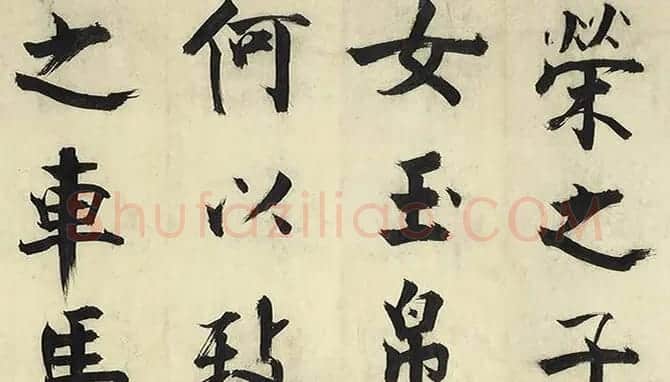 榮之子
女玉帛
何以致
之車馬
Shufaziliao.COM